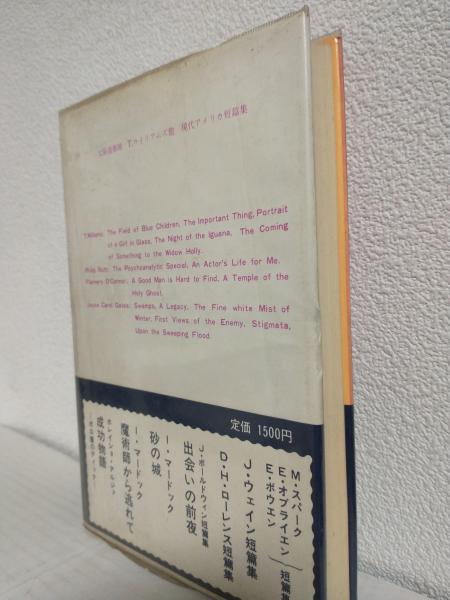 T.ウイリアムズ他 現代アメリカ短篇集
T.Williams: The Field of Blue Children, The Important Thing, Portrait
of a Girl in Glass, The Night of the Iguana, The Coming
of Something to the Widow Holly.
Philip Roth: The Psychoanalytic Special, An Actor's Life for Me.
Flannery O'Connor: A Good Man is Hard to Find, A Temple of the
Holy Ghost.
Joyce Carol Oates: Swamps, A Legacy, The Fine white Mist of
Winter, First Views of the Enemy, Stigmata,
Upon the Sweeping Flood.
定価 1500円
M・スパーク
E・オブライエン
E・ボウエン
短篇集
J・ウェイン短篇集
D・H・ローレンス短篇集
J・ボールドウィン短篇集
出会いの前夜
I・マードック
砂の城
I・マードック
魔術師から逃れて
ホレイショ・アルジァ
成功物語